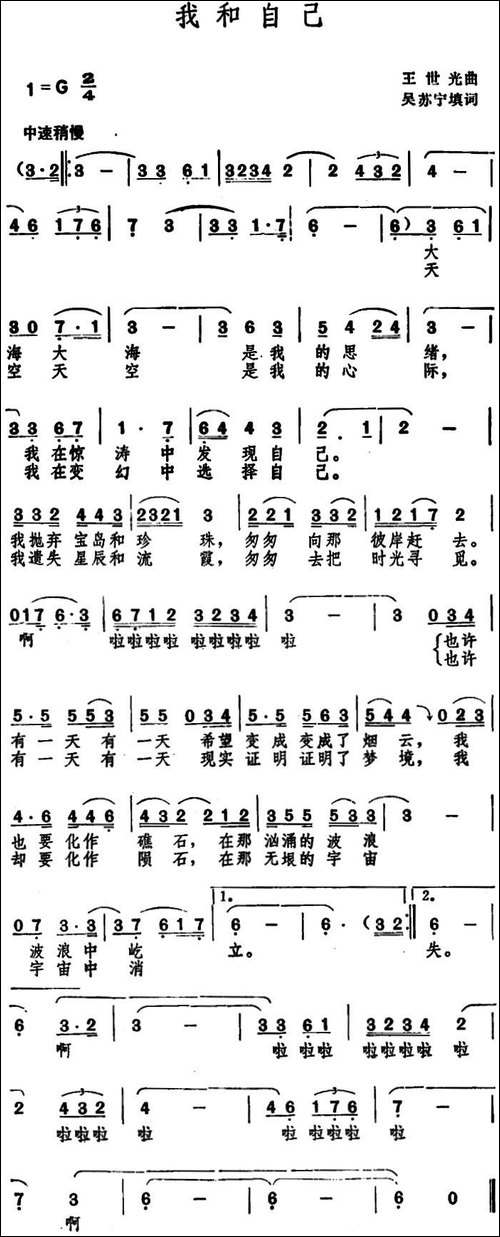 我和自己
1=G 2/4
王世光曲
吴苏宁填词
中速稍慢
(3·2 ‖: 3 — | 3 3 6 1 | 3234 2 | 2 432 | 4 —
46 176 | 7 3 | 33 1·7 | 6 — | 6) 3 61
大
天
30 7·1 | 3 — | 3 6 3 | 5 4 24 | 3 —
海大 海 是我 的思 绪，
空天 空 是我 的心 际，
33 67 | 1· 7 | 64 4 3 | 2· 1 | 2 —
我在惊 涛中发现自己。
我在变 幻中选择自己。
332 443 | 2321 3 | 221 331 | 1217 2
我抛弃 宝岛和珍 珠，匆匆 向那 彼岸赶去。
我遗失 星辰和流 霞，匆匆 去把 时光寻觅。
017 6·3 | 6712 3234 | 3 — | 3 034
啊 啦啦啦啦 啦啦啦啦 啦 也许
也许
5·5 553 | 55 034 | 5·5 563 | 544 023
有一天有 一天 希望 变成变成了 烟云，我
有一天有 一天 现实 证明证明了 梦境，我
4·6 446 | 432 212 | 355 535 | 3 —
也要化作 礁石，在那 汹涌的波浪
却要化作 陨石，在那 无垠的宇宙
07 3·3 | 37 617 | 1. 6 — | 6· (32 :‖ 2. 6 —
波浪中 屹 立。 失。
宇宙中 消
6 3·2 | 3 — | 33 61 | 3234 2
啊 啦 啦啦 啦啦啦啦 啦
2 432 | 4 — | 46 176 | 7 —
啦啦啦 啦 啦 啦啦 啦
7 3 | 6 — | 6 — | 6 0 ‖
啊